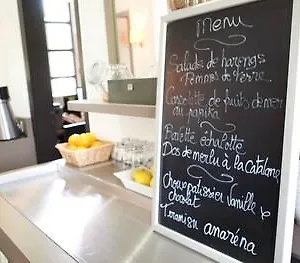 menu
Salade de harengs
Pommes de terre
Cassolette de fruits de mer
au paprika
Bavette échalotte
Dos de merlu à la catalane
Choux patissier vanille
chocolat
Tiramisu amaréna